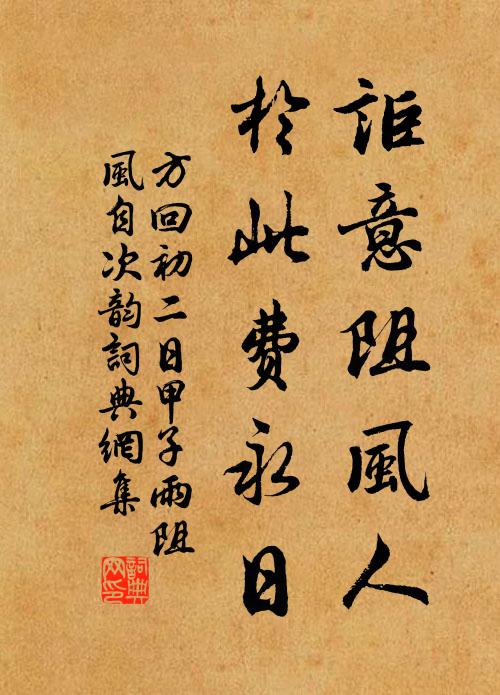 詎意阻風人
於此費永日
方回初二日甲子雨阻
風自次韵詞典網集
詞典网印